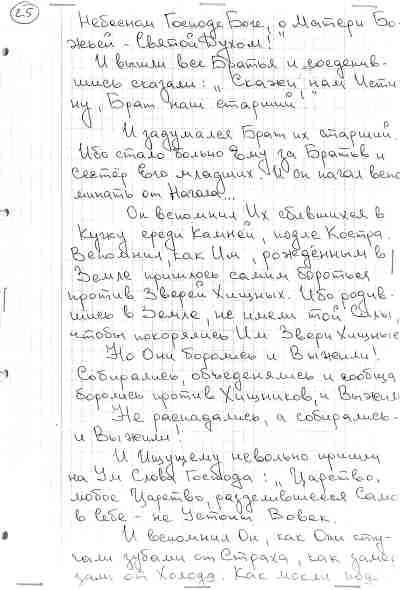 25
Небесном Господе Боге, о Матери Бо-
жьей - Святой Духом!"
И вышли все Братья и соеденив-
шись сказали: „Скажи нам Исти-
ну, Брат наш старший!"
И задумался Брат их старший.
Ибо стало больно Ему за Братьев и
Сестёр Его младших. И он начал вспо-
минать от Начала...
Он вспомнил Их сбившихся в
Кучку среди Камней, подле Костра.
Вспомнил, как Им, рождённым в
Земле пришлось самим бороться
против Зверей Хищных. Ибо родив-
шись в Земле, не имели той Силы,
чтобы покорялись Им Звери Хищные
Но Они боролись и Выжили!
Собирались, объеденялись и сообща
боролись против Хищников, и Выжили
Не распадались, а собирались -
и Выжили!
И Ищущему невольно пришли
на Ум Слова Господа: „Царство,
любое Царство, разделившееся Само
в себе - не Устоит Вовек.
И вспомнил Он, как Они сту-
чали зубами от Страха, как замер-
зали от Холода. Как могли под-